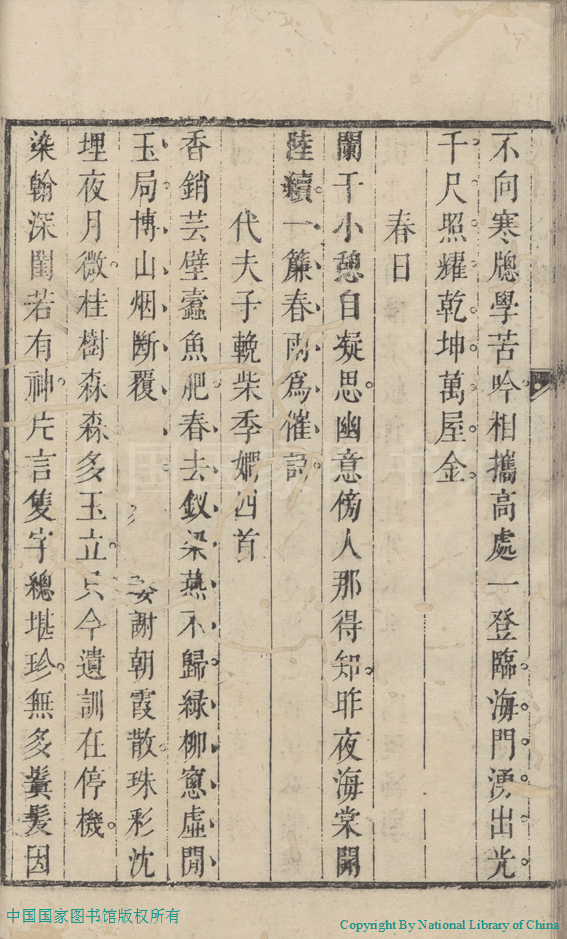 不向寒牕學苦吟相攜高處一登臨海門湧出光
千尺照耀乾坤萬屋金
春日
闌干小憩自凝思幽意傍人那得知昨夜海棠開
陸續一簾春雨為催詩
代夫子輓柴季嫻四首
香銷芸壁蠹魚肥春去釵梁燕不歸綠柳窻虛閒
玉局博山烟斷覆
娑謝朝霞散珠彩沈
埋夜月微桂樹森森多玉立只今遺訓在停機
染翰深閨若有神片言隻字總堪珍無多鬒髮因
中国国家图书馆版权所有
Copyright By National Library of China